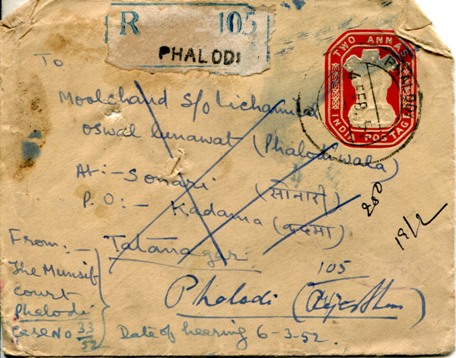 R 105
PHALODI
TWO ANNAS
INDIA POSTAGE
PHALODI
4 FEB
To
Moolchand S/o Lichamilal
Oswal Lunawat (Phalodiwala)
At:- Sonari (सोनारी)
P.O:- Kadama (कदमा)
Tatanagar
288
18/2
105
Phalodi (Rajasthan)
From:-
The Munsif
Court
Phalodi
Case No 33/52
Date of hearing 6-3-52.